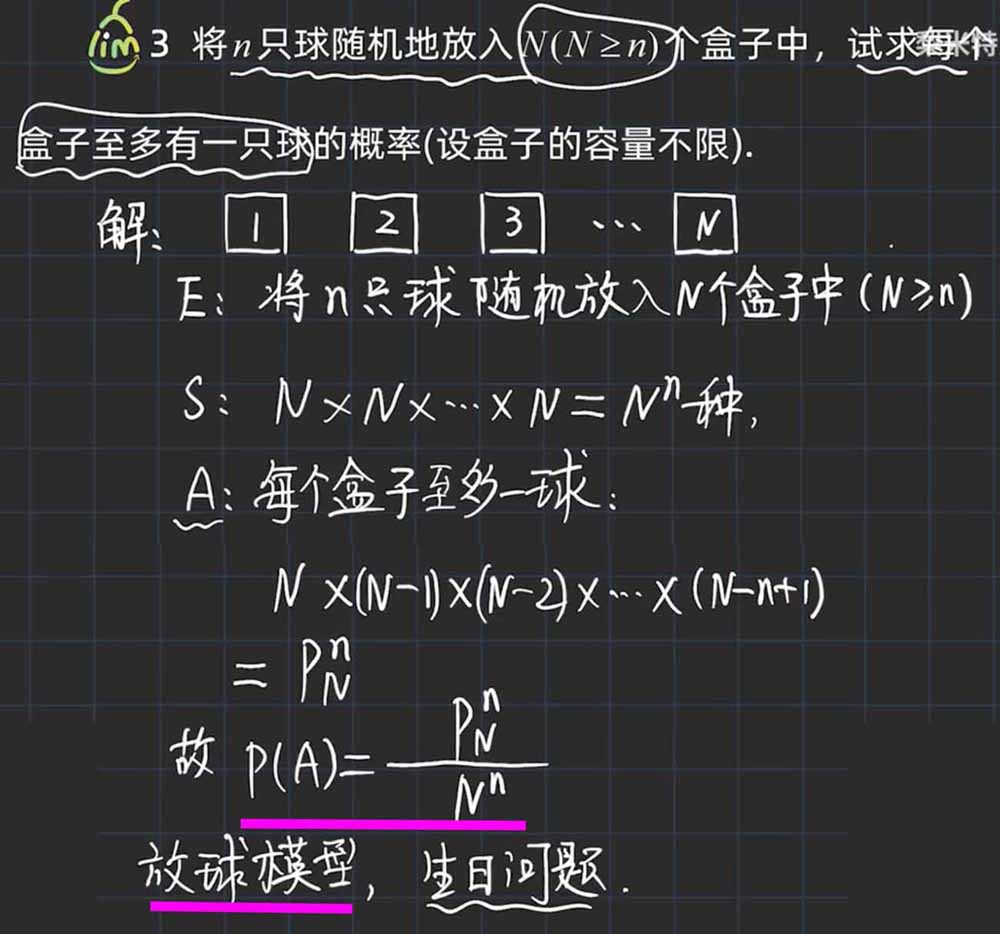 lim 3 将n只球随机地放入N(N≥n)个盒子中，试求每个
盒子至多有一只球的概率(设盒子的容量不限).
解: 1 2 3 … N
E: 将n只球随机放入N个盒子中(N≥n)
S: N×N×…×N=Nⁿ种,
A: 每个盒子至多一球:
N×(N-1)×(N-2)×…×(N-n+1)
= P_N^n
故 P(A)= P_N^n / N^n
放球模型, 生日问题.